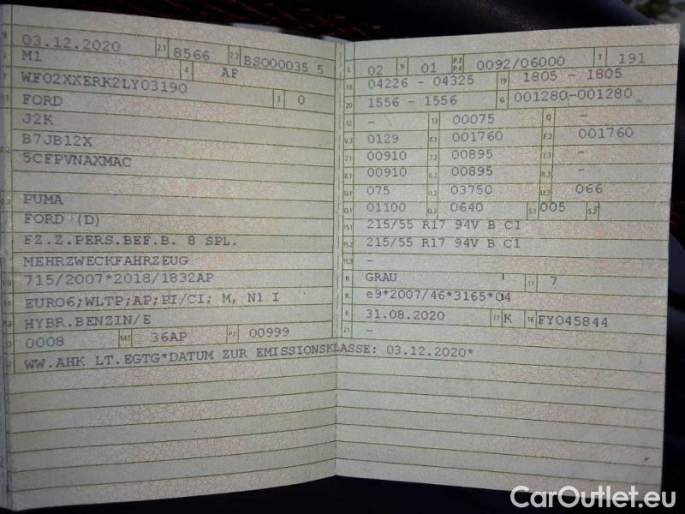 03.12.2020 2.1 8566 2.2 BSO00035 5
M1 4 AF
WF02XXERK2LY03190
FORD 3 0
J2K
B7JB12X
5CFPVNAXMAC
PUMA
FORD (D)
FZ.Z.PERS.BEF.B. 8 SPL.
MEHRZWECKFAHRZEUG
715/2007*2018/1832AP
EURO6;WLTP;AP;PI/CI; M, N1 I
HYBR.BENZIN/E
0008 14.1 36AP P.1 00999
WW.AHK LT.EGTG*DATUM ZUR EMISSIONSKLASSE: 03.12.2020*
L 02 9 01 P.2 P.4 0092/06000 T 191
18 04226 - 04325 19 1805 - 1805
20 1556 - 1556 G 001280-001280
12 - 13 00075 Q -
V.7 0129 F.1 001760 F.2 001760
7.1 00910 7.2 00895 7.3 -
8.1 00910 8.2 00895 8.3 -
U.1 075 U.2 03750 U.3 066
O.1 01100 O.2 0640 S.1 005 S.2
15.1 215/55 R17 94V B CI
15.2 215/55 R17 94V B CI
15.3 -
R GRAU 11 7
K e9*2007/46*3165*04
6 31.08.2020 17 K 16 FY045844
21 -
CarOutlet.eu